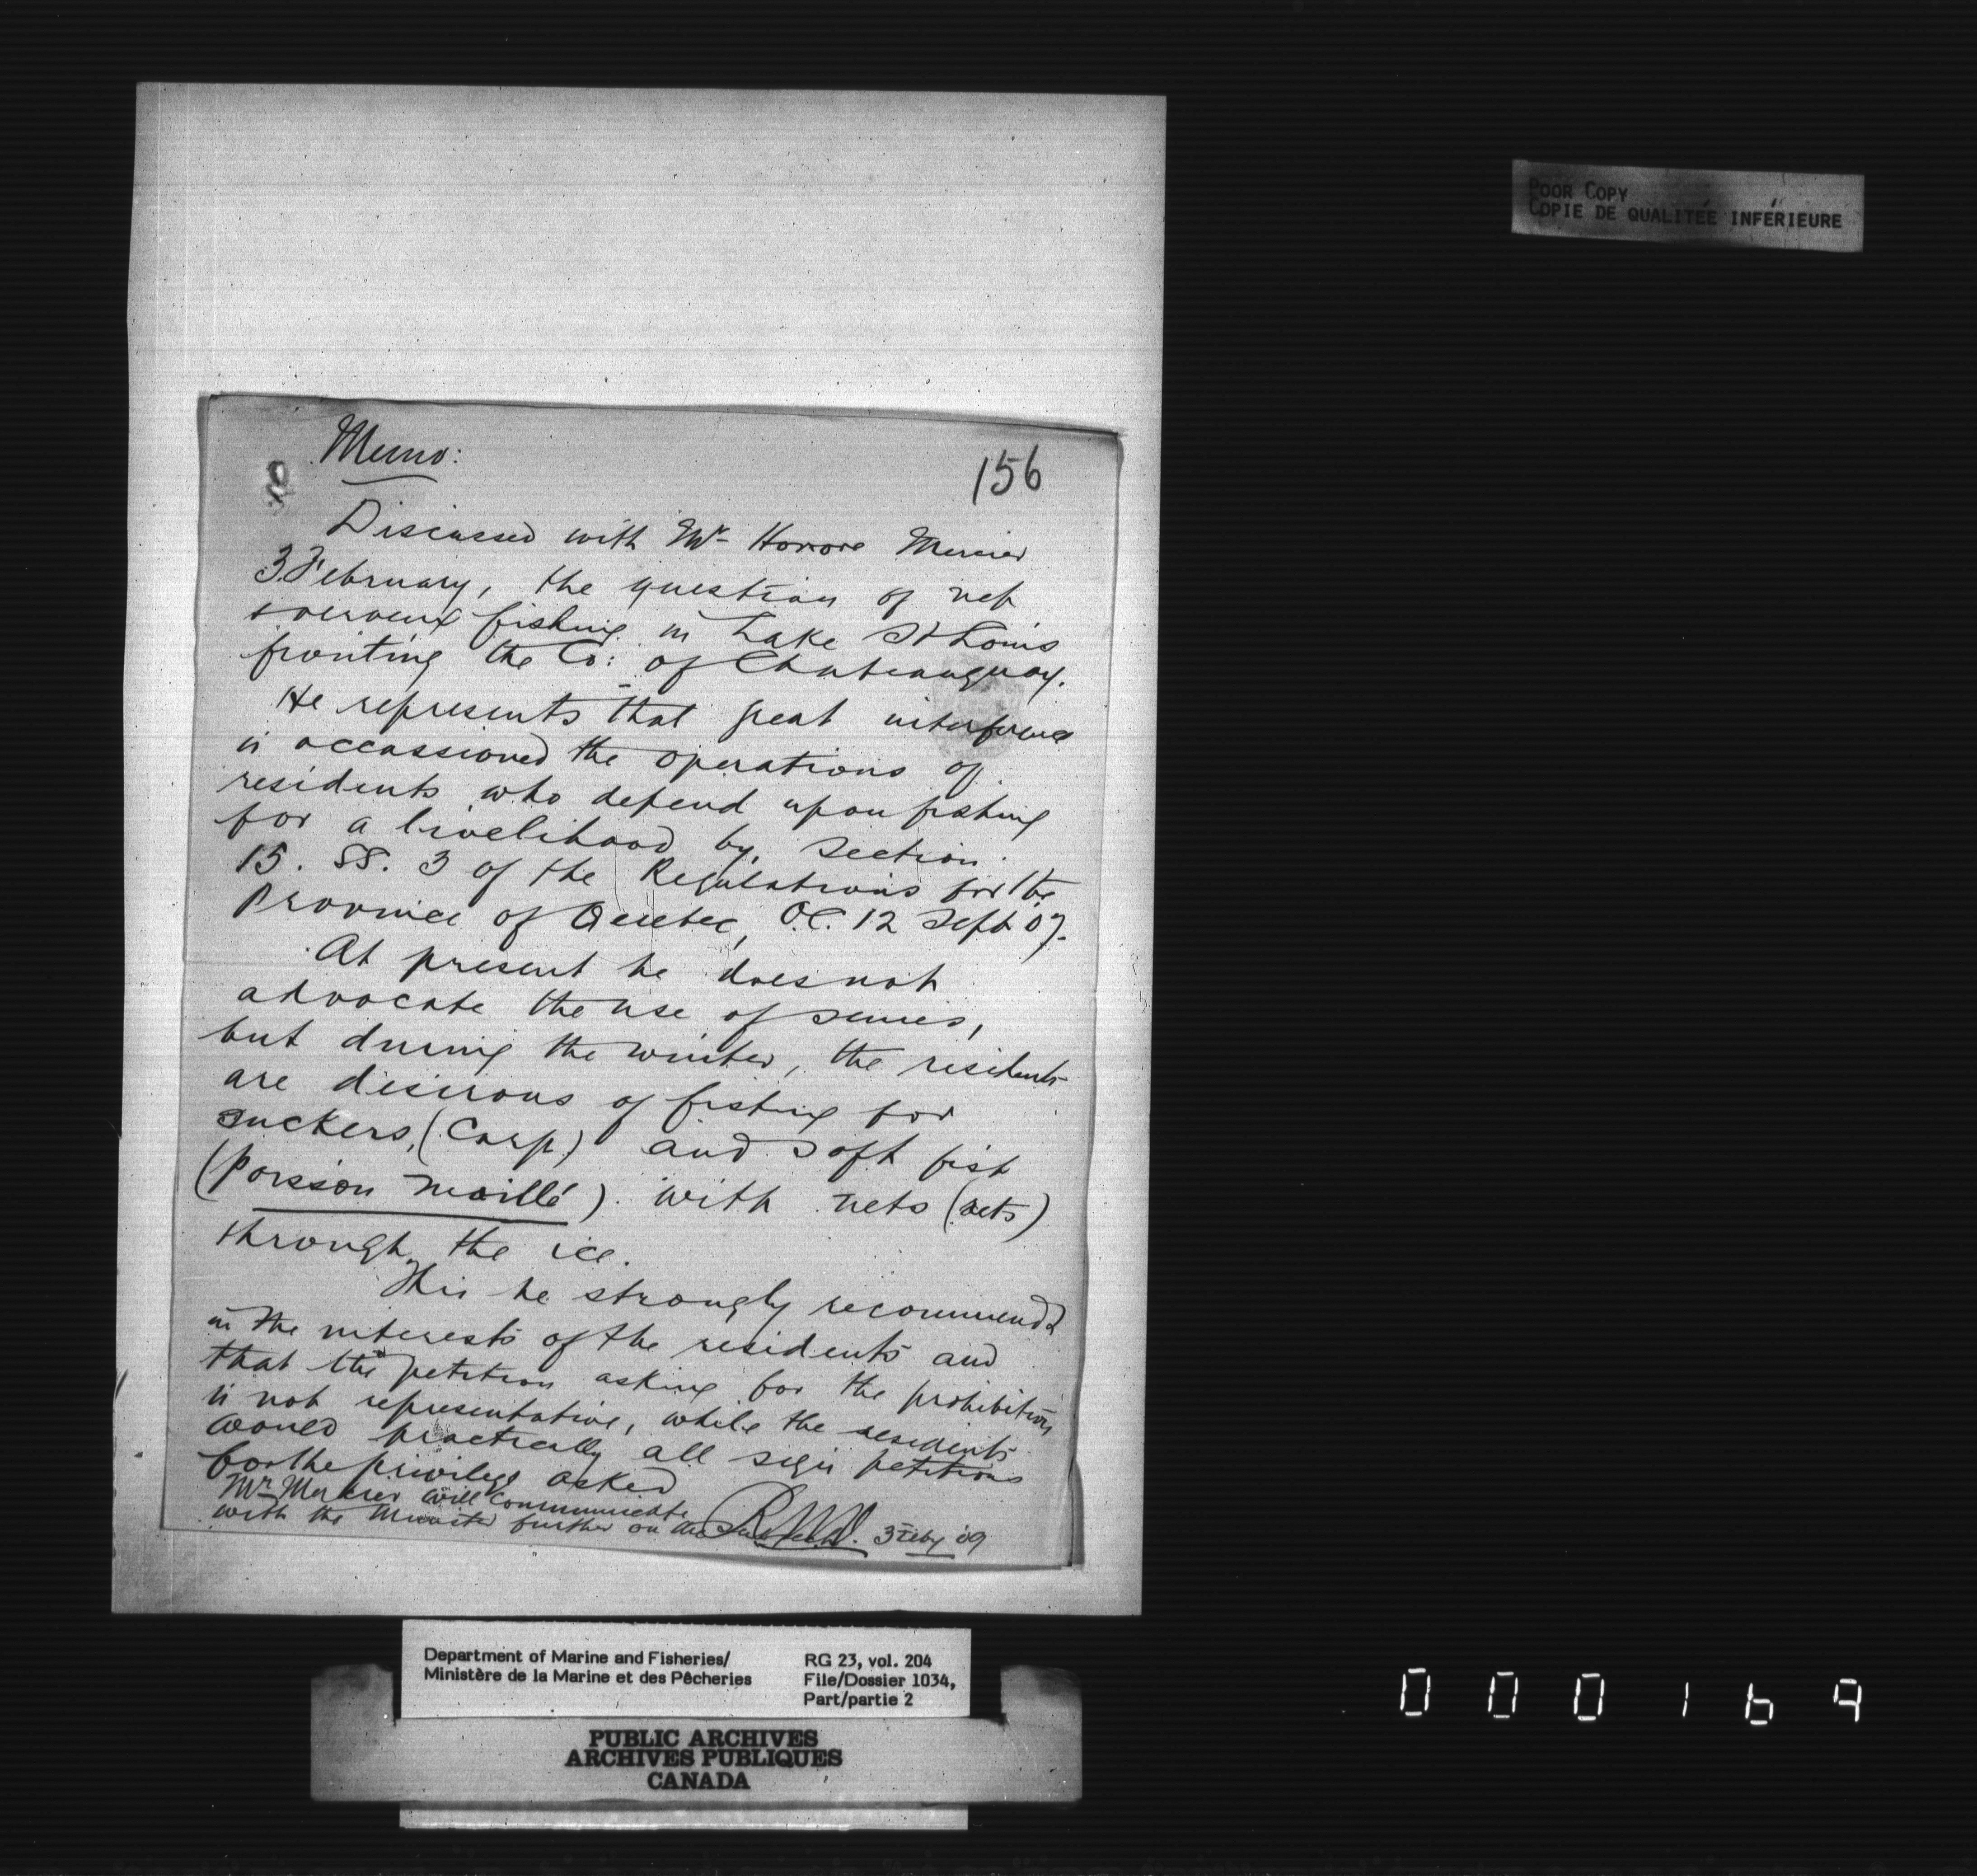 Memo:
156
Discussed with Mr Honore Mercier
3 February, the question of net
& verveux fishing in Lake St Louis
fronting the Co: of Chateauguay.
He represents that great interference
is occassioned the operations of
residents who depend upon fishing
for a livelihood by section
15. SS. 3 of the Regulations for the
Province of Quebec, O.C. 12 Sept 07.
At present he does not
advocate the use of seines,
but during the winter, the residents
are desirous of fishing for
suckers, (Carp) and soft fish
(poisson maillé) with nets (rets)
through the ice.
This he strongly recommends
in the interests of the residents and
that the petition asking for the prohibition
is not representative, while the residents
would practically all sign petitions
for the privilege asked
Mr Mercier will communicate
with the Minister further on the subject.
3 Feby 09
POOR COPY
COPIE DE QUALITÉE INFÉRIEURE
Department of Marine and Fisheries/
Ministère de la Marine et des Pêcheries
RG 23, vol. 204
File/Dossier 1034,
Part/partie 2
PUBLIC ARCHIVES
ARCHIVES PUBLIQUES
CANADA
000169